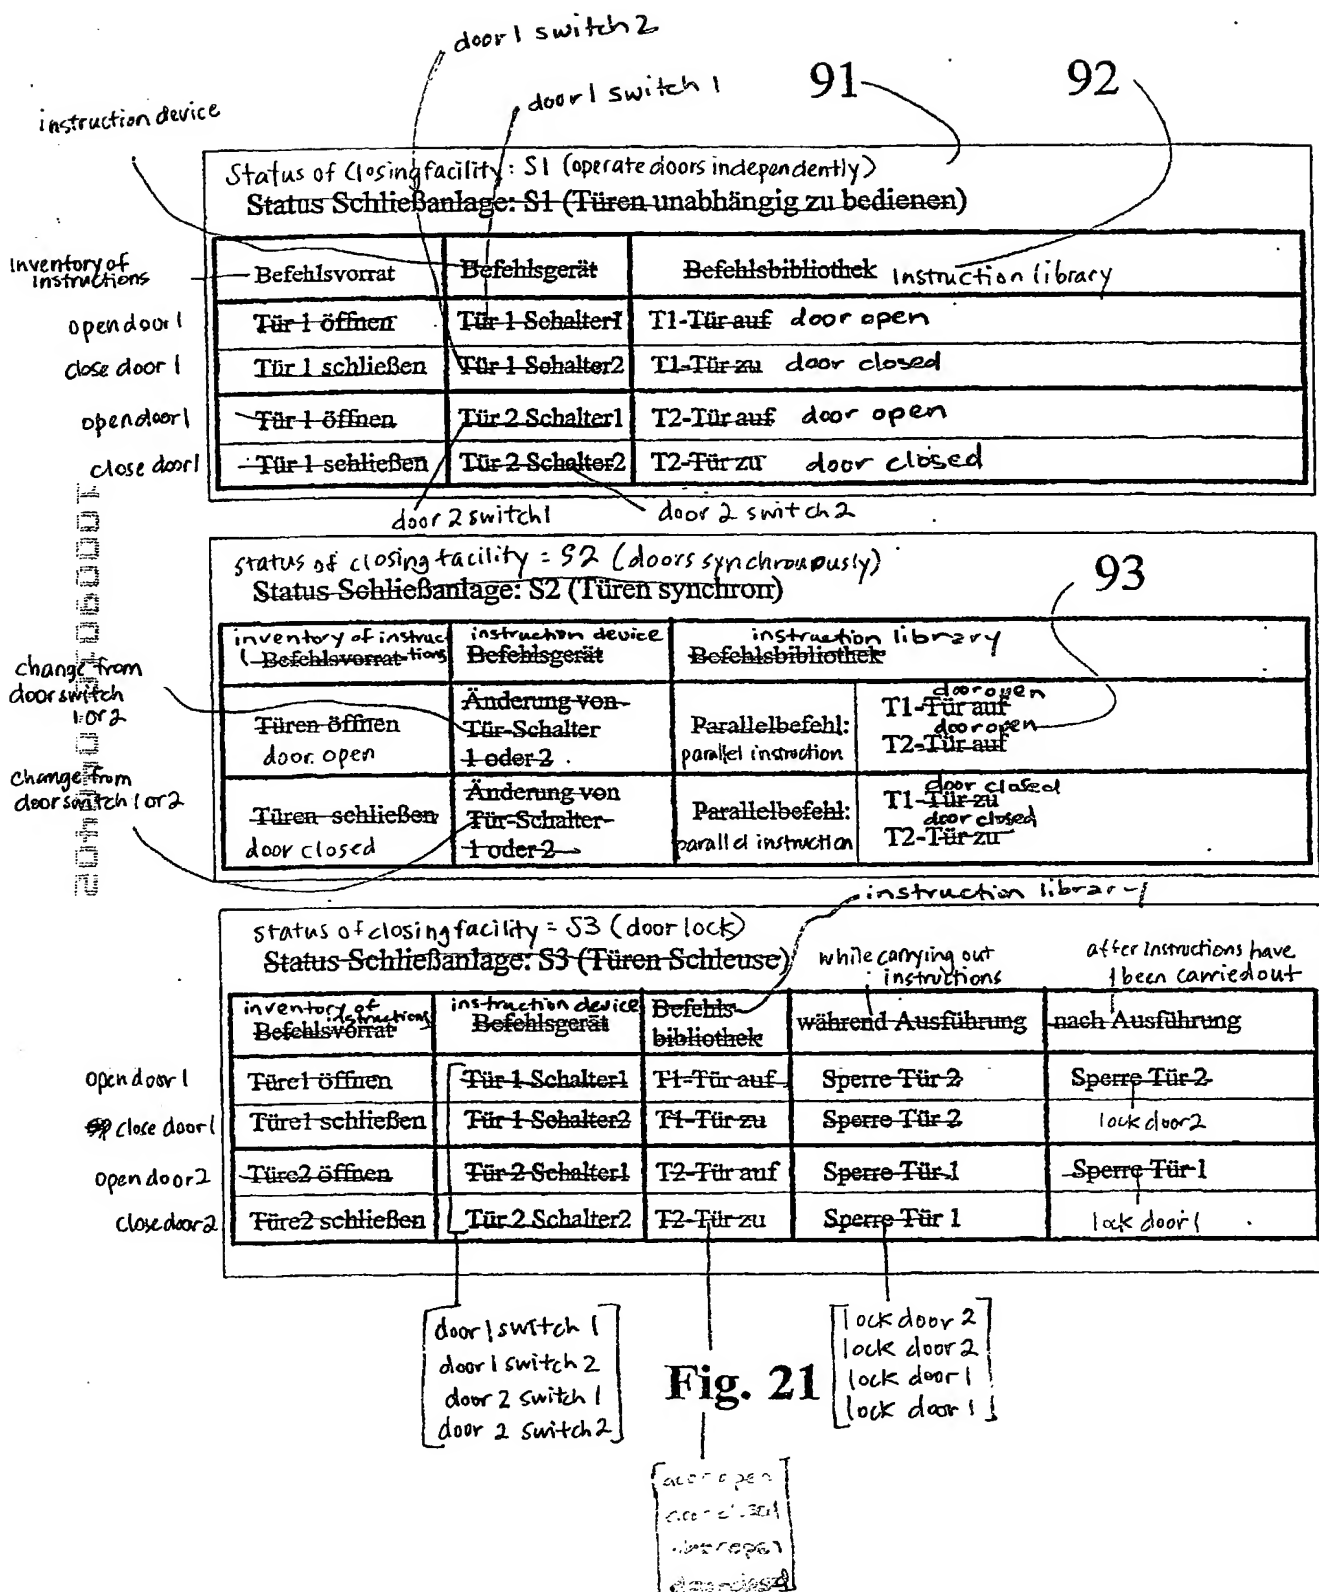 door 1 switch 2
door 1 switch 1
91
92
instruction device
Status of Closing facility: S1 (operate doors independently)
Status Schließanlage: S1 (Türen unabhängig zu bedienen)
Inventory of
instructions
Befehlsvorrat Befehlsgerät Befehlsbibliothek Instruction library
open door 1 Tür 1 öffnen Tür 1 Schalter1 T1-Tür auf door open
close door 1 Tür 1 schließen Tür 1 Schalter2 T1-Tür zu door closed
open door 1 Tür 1 öffnen Tür 2 Schalter1 T2-Tür auf door open
close door 1 Tür 1 schließen Tür 2 Schalter2 T2-Tür zu door closed
door 2 switch 1 door 2 switch 2
status of closing facility = S2 (doors synchronously)
Status Schließanlage: S2 (Türen synchron)
93
inventory of instructions instruction device instruction library
Befehlsvorrat Befehlsgerät Befehlsbibliothek
change from
door switch
1 or 2
Türen öffnen
door open
Änderung von
Tür-Schalter
1 oder 2
Parallelbefehl:
parallel instruction
door open
T1-Tür auf
door open
T2-Tür auf
change from
door switch 1 or 2
Türen schließen
door closed
Änderung von
Tür-Schalter
1 oder 2
Parallelbefehl:
parallel instruction
door closed
T1-Tür zu
door closed
T2-Tür zu
instruction library
status of closing facility = S3 (door lock)
Status Schließanlage: S3 (Türen Schleuse)
while carrying out
instructions
after instructions have
been carried out
inventory of
instructions
Befehlsvorrat
instruction device
Befehlsgerät
Befehls-
bibliothek
während Ausführung
nach Ausführung
open door 1 Türe1 öffnen Tür 1 Schalter1 T1-Tür auf Sperre Tür 2 Sperre Tür 2
close door 1 Türe1 schließen Tür 1 Schalter2 T1-Tür zu Sperre Tür 2 lock door 2
open door 2 Türe2 öffnen Tür 2 Schalter1 T2-Tür auf Sperre Tür 1 Sperre Tür 1
close door 2 Türe2 schließen Tür 2 Schalter2 T2-Tür zu Sperre Tür 1 lock door 1
door 1 switch 1
door 1 switch 2
door 2 switch 1
door 2 switch 2
Fig. 21
lock door 2
lock door 2
lock door 1
lock door 1
door open
door closed
door open
door closed